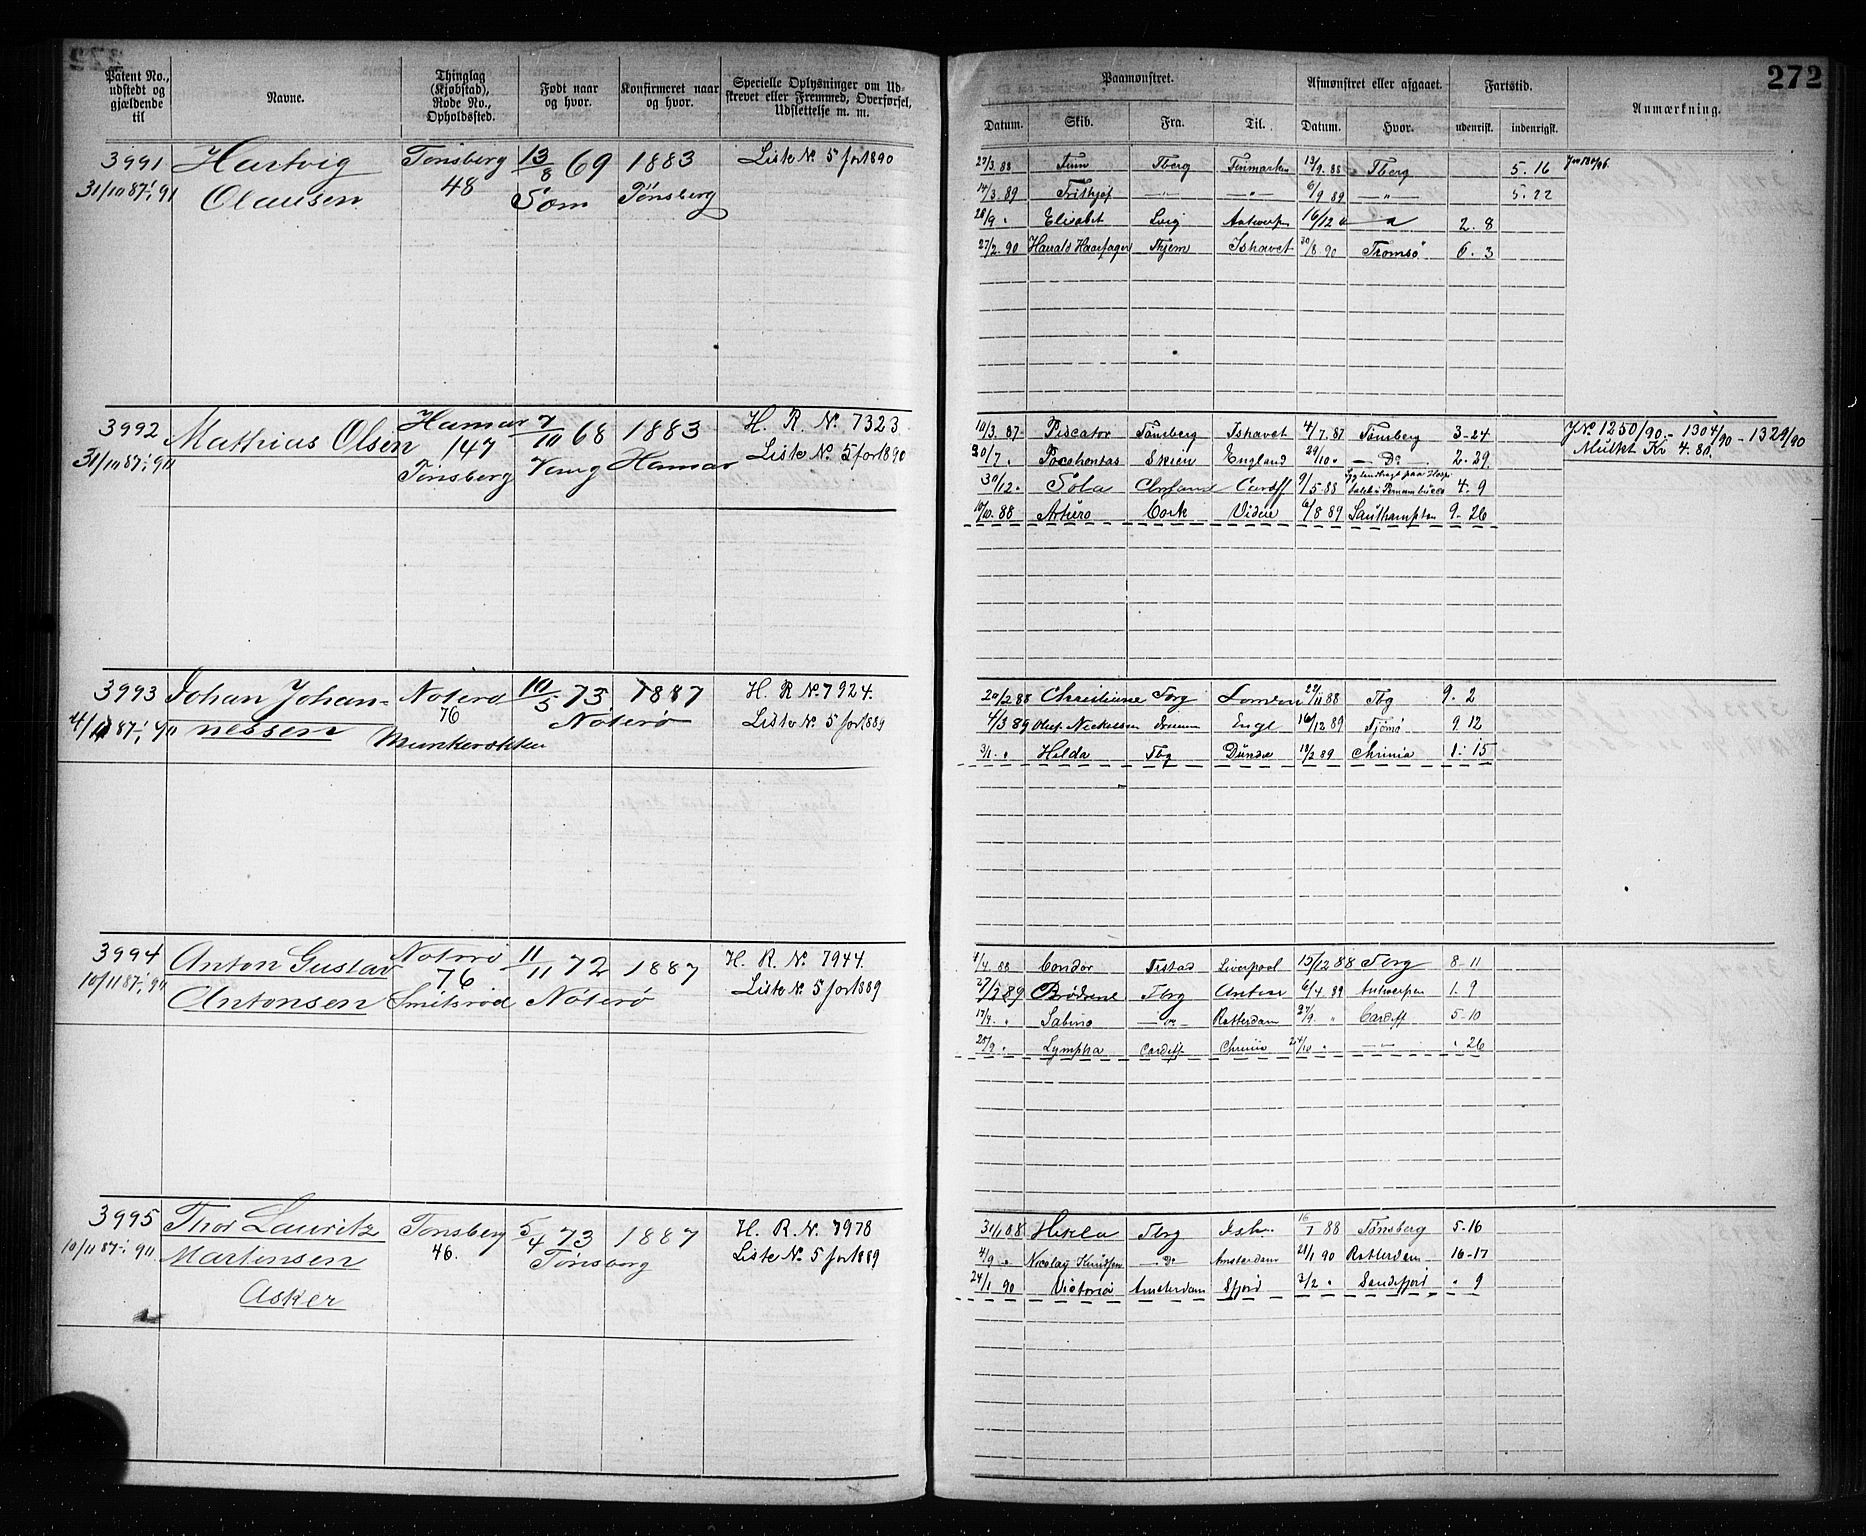 272
Patent No., udstedt og gjældende til
Navne.
Thinglag (Kjøbstad), Rode No., Opholdssted.
Født naar og hvor.
Konfirmeret naar og hvor.
Specielle Oplysninger om Udskrevet eller Fremmed, Overførsel, Udslettelse m. m.
Paamønstret.
Afmønstret eller afgaaet.
Fartstid.
Anmærkning.
Datum. Skib. Fra. Til. Datum. Hvor. udenrigsk. indenrigsk.
3991 Hartvig Tønsberg 13/8 69 1883 Liste No. 5 for 1890
31/10 87 91 Olausen 48 Sem Tönsberg
23/3. 88 Tberg Finmarken 13/9. 88 Tberg 5. 16
14/3. 89 Frithjof — " — — " — 6/9 89 — " — 5. 22
28/9 " Elisabet Antwerpen 16/12 2. 8
27/2. 90 Harald Haarfager Ishavet 30/8 90 Tromsö 6. 3
3992 Mathias Olsen Hamar 7/10 68 1883 H. R. No. 7323
31/10 87 147 Vang Hamar Liste No. 5 for 1890
Tönsberg
10/3. 87 Piscator Tønsberg Ishavet 4/7. 87 Tønsberg 3-24 JNo 1250/90 - 1304/90 - 1329/90
30/7. Pocahontas Skien England 29/10. — Do — 2. 29. Mulkt Kr 4. 80.
30/12. Sola Cardiff 9/5 88 Pernambuco 4. 9
10/10. 88 Arturo Cork Videre 6/8 89 Southampton 9. 26
3993 Johan Johan- Nøterø 10/5 73 1887 H. R No. 7924.
nessen 76 Nöterö Liste No. 5 for 1889
Munkerekken
20/2 88 Christiane Tbrg London 22/11 88 Tbg 9. 2
4/3 89 Oluf Nickelsen Engl 16/12 89 Tjömö 9. 12
3/1. " Hilda Tbg Dundee 18/2 89 Chrinia 1. 15
3994 Anton Gustav Nøterø 11/11 72 1887 H. R. No. 7944.
10/11 87 Antonsen 76 Nöterö Liste No. 5 for 1889
Smidsrød
4/4. 88 Condor Fr.stad Liverpool 15/12 88 Tbrg 8-11
89 Brødrene Tbrg 6/4. 89 Antwerpen 1. 9
17/4. " Sabino — Do — Rotterdam 27/9. " Cardiff 5-10
28/9 " Lympha Cardiff Chrinia 24/10 " — " — " 26
3995 Thor Lauritz Tønsberg 5/4 73 1887 H. R. No. 7978
10/11 87 Martinsen 46. Tønsberg Liste No. 5 for 1889
Asker
31/1 88 Hekla Tbrg Ish. 16/7 88 Tønsberg 5-16
4/9 " Nicolay Knudsen — Do — Amsterdam 21/1 90 Rotterdam 16-17
24/1 90 Victoria Amsterdam Sfjord 3/2 " Sandefjord " 9